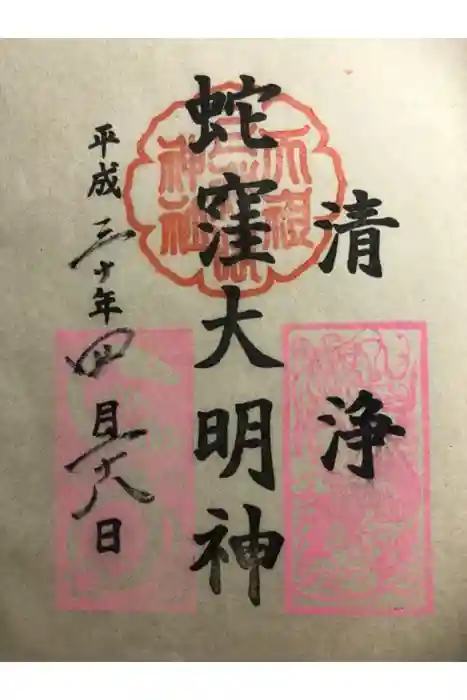 清浄
蛇窪大明神
平成三十年四月二十八日
天祖
神社